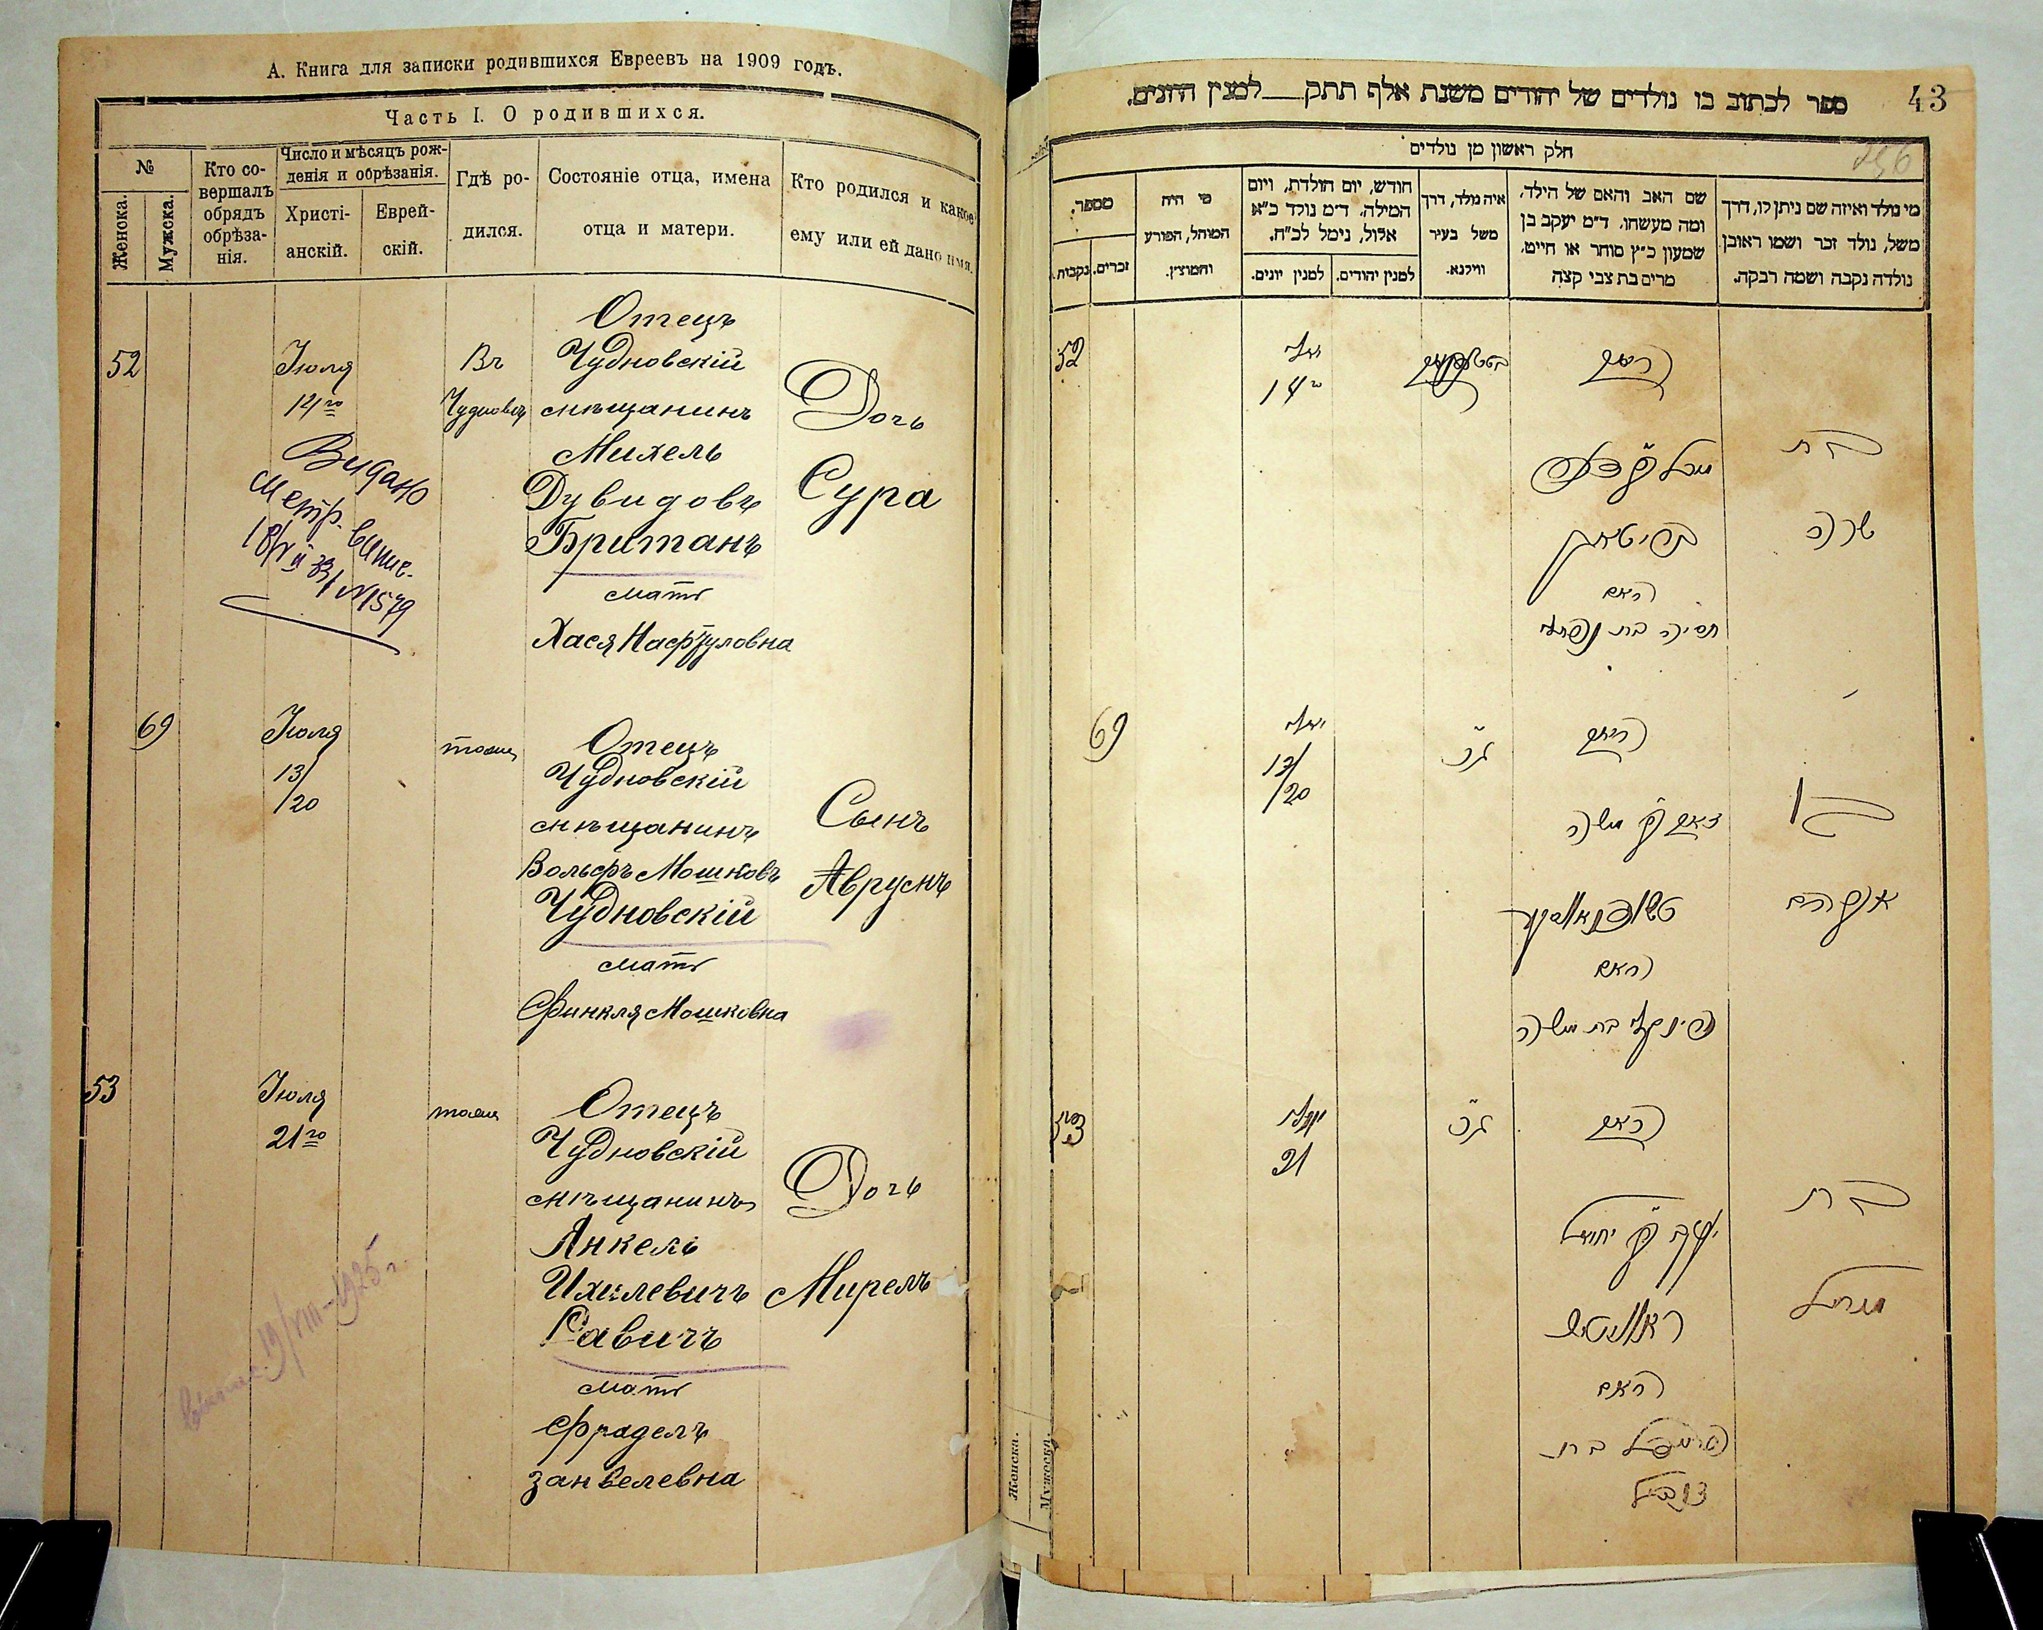 А. Книга для записки родившихся Евреевъ на 1909 годъ.
Часть I. О родившихся.
№
Женска.
Мужска.
Кто со-
вершалъ
обрядъ
обрѣза-
нія.
Число и мѣсяцъ рож-
денія и обрѣзанія.
Христі-
анскій.
Еврей-
скій.
Гдѣ ро-
дился.
Состояніе отца, имена
отца и матери.
Кто родился и какое
ему или ей дано имя.
52
Іюля
14го
Въ
Чудновѣ
Отецъ
Чудновскій
мѣщанинъ
Михель
Дувидовъ
Бритaнъ
мать
Хася Нафтуловна
Дочь
Сура
Видано
метр. випис.
18/VII 33 / №1579
69
Іюля
13/
/20
тоже
Отецъ
Чудновскій
мѣщанинъ
Вольфъ Мошковъ
Чудновскій
мать
Финкля Мошковна
Сынъ
Аврумъ
53
Іюля
21го
тоже
Отецъ
Чудновскій
мѣщанинъ
Янкель
Ихилевичъ
Равичъ
мать
Фрадель
Занвелевна
Дочь
Мирель
19/VIII-1925 г.
43
ספר לכתוב בו נולדים של יהודים משנת אלף תתק__למנין היונים.
חלק ראשון מן נולדים
מספר.
נקבות.
זכרים.
מי היה
המוהל, הפורע
והמוצץ.
חודש, יום הולדת, ויום
המילה. ד״מ נולד כ״א
אלול, נימל לכ״ח.
למנין יונים.
למנין יהודים.
איה נולד, דרך
משל בעיר
ווילנא.
שם האב והאם של הילד.
ומה מעשהו. ד״מ יעקב בן
שמעון כ״ץ סוחר או חייט.
מרים בת צבי קצה
מי נולד ואיזה שם ניתן לו, דרך
משל, נולד זכר ושמו ראובן
נולדה נקבה ושמה רבקה.
52
יולי
14
האב
בת
שרה
האם
חסיה בת נפתלי
69
יולי
13/
/20
האב
זאב ב״ר משה
בן
אברהם
האם
פינקלי בת משה
53
יולי
21
האב
יעקב ב״ר יחיאל
ראוויטש
בת
מירל
האם
פריידל בת
זנוויל
Женска.
Мужска.